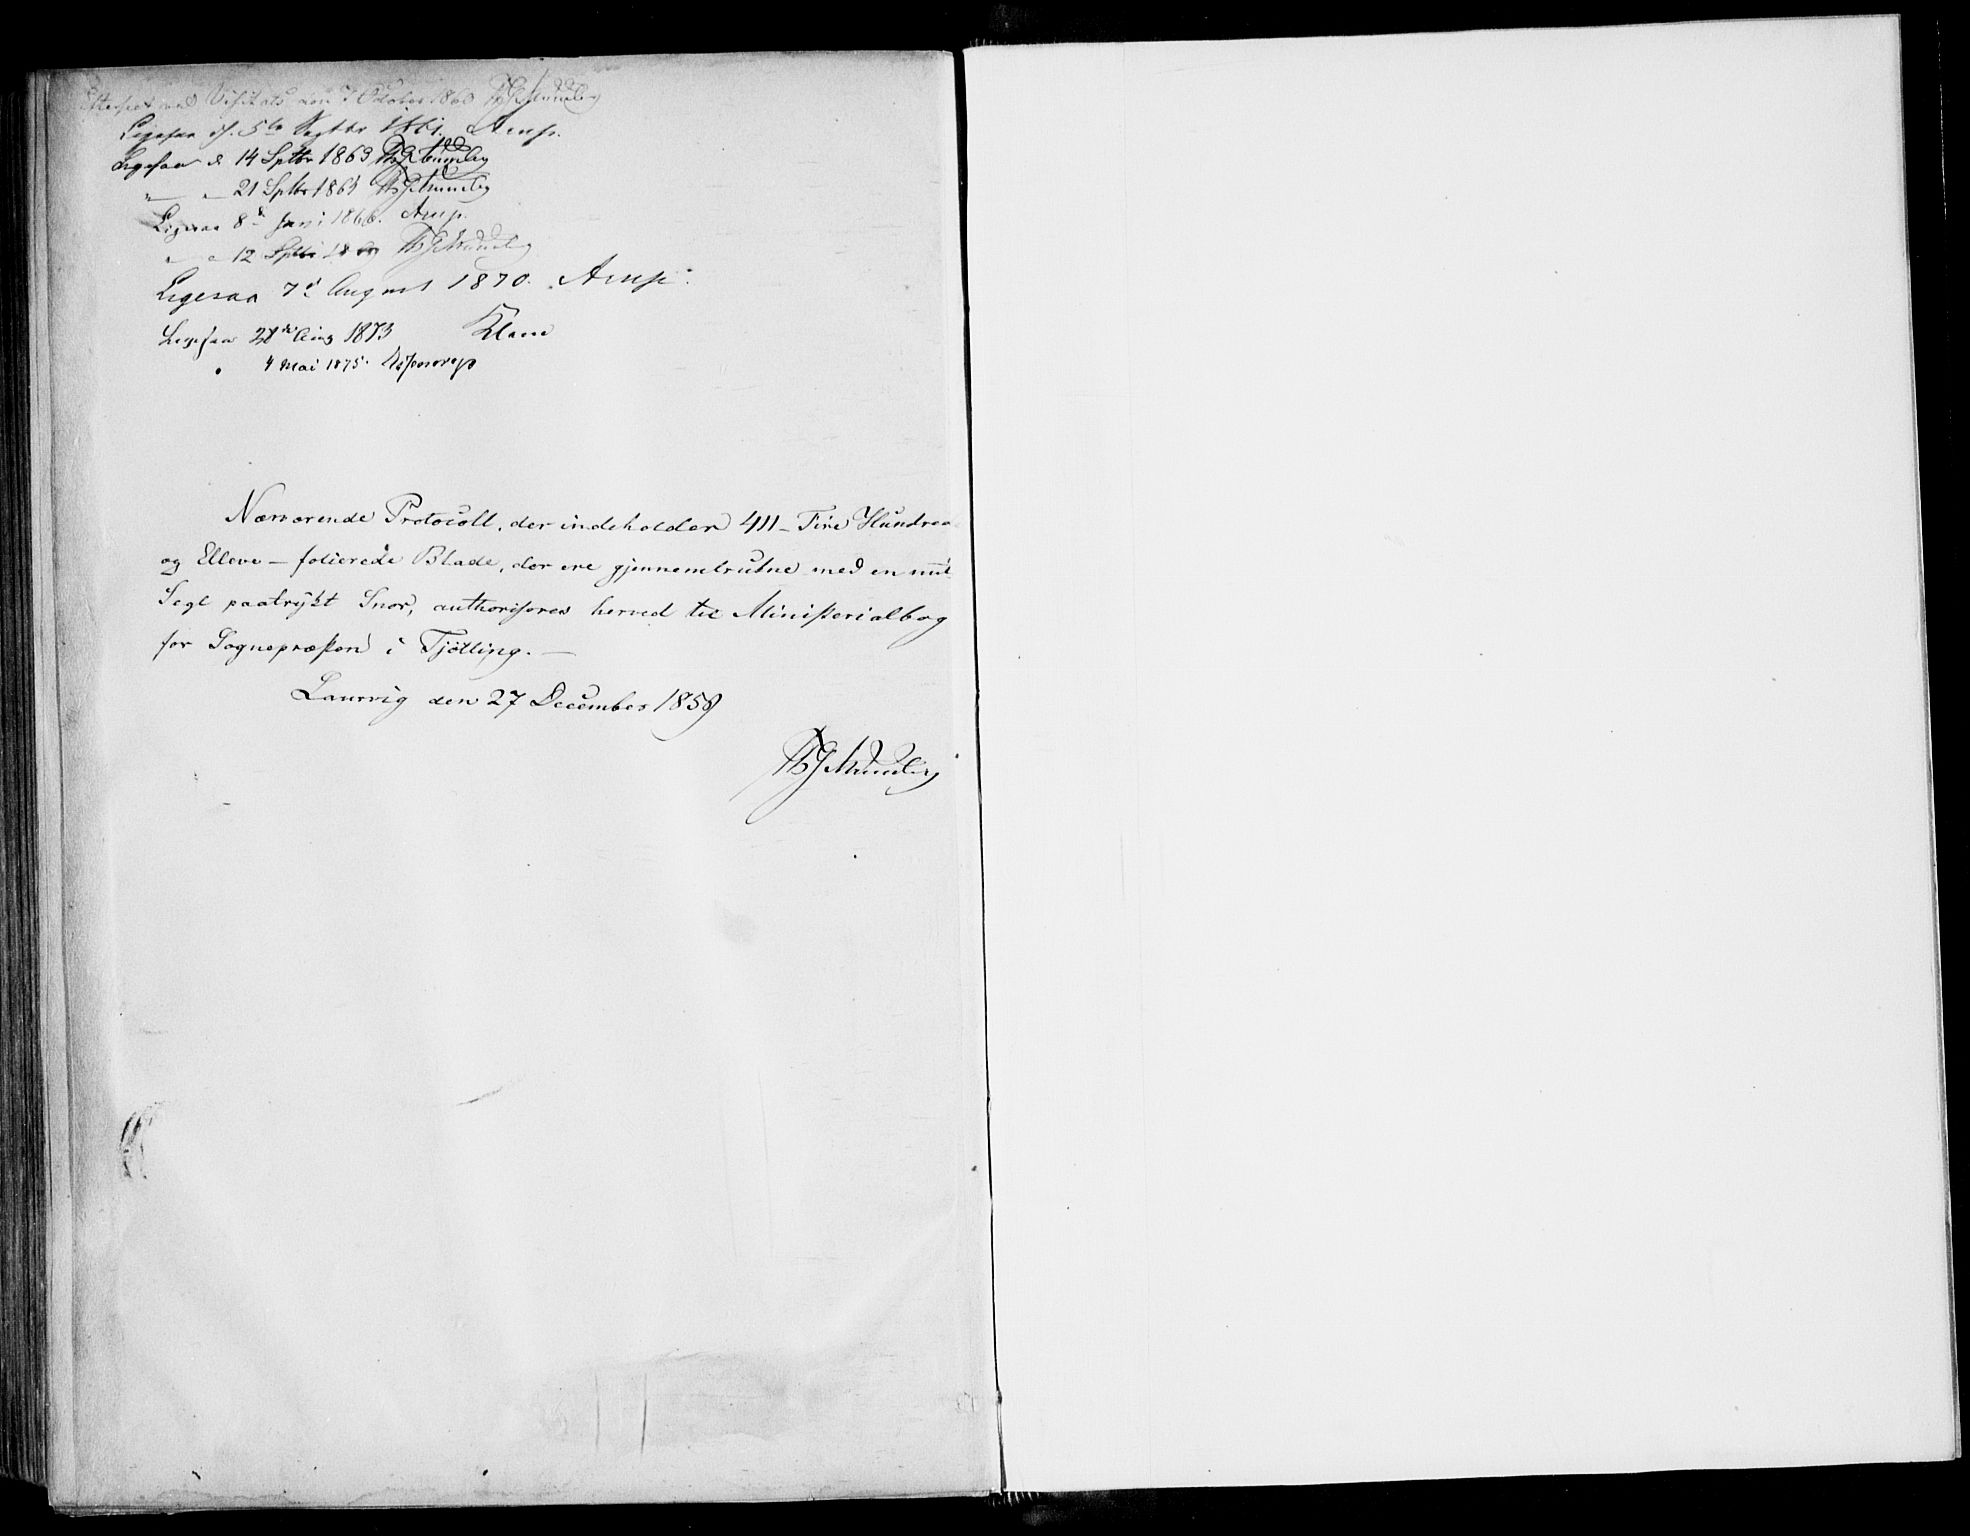 Efterseet ved Visitats den 7 October 1860 Th J Münster
Ligesaa d. 5te Septbr 1861. Arup.
Ligesaa d 14 Sptbr 1863
" " 21 Sptbr 1865
Ligesaa 8d Juni 1866. Arup.
" " 12 Sptbr
Ligesaa 7d August 1870. Arup.
Ligesaa 28de Aug 1873
" 4 Mai 1875.
Nærværende Protocoll, der indeholder 411 – Fire Hundrede
og Elleve – folierede Blade, der ere gjennemtrukne med en mit
Segl paatrykt Snor, authoriseres herved til Ministerialbog
for Sognepræsten i Tjølling. –
Laurvig den 27 December 1859